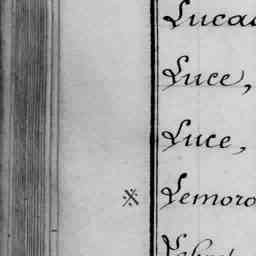 Lucas
Luce,
Luce,
※ Lemoro